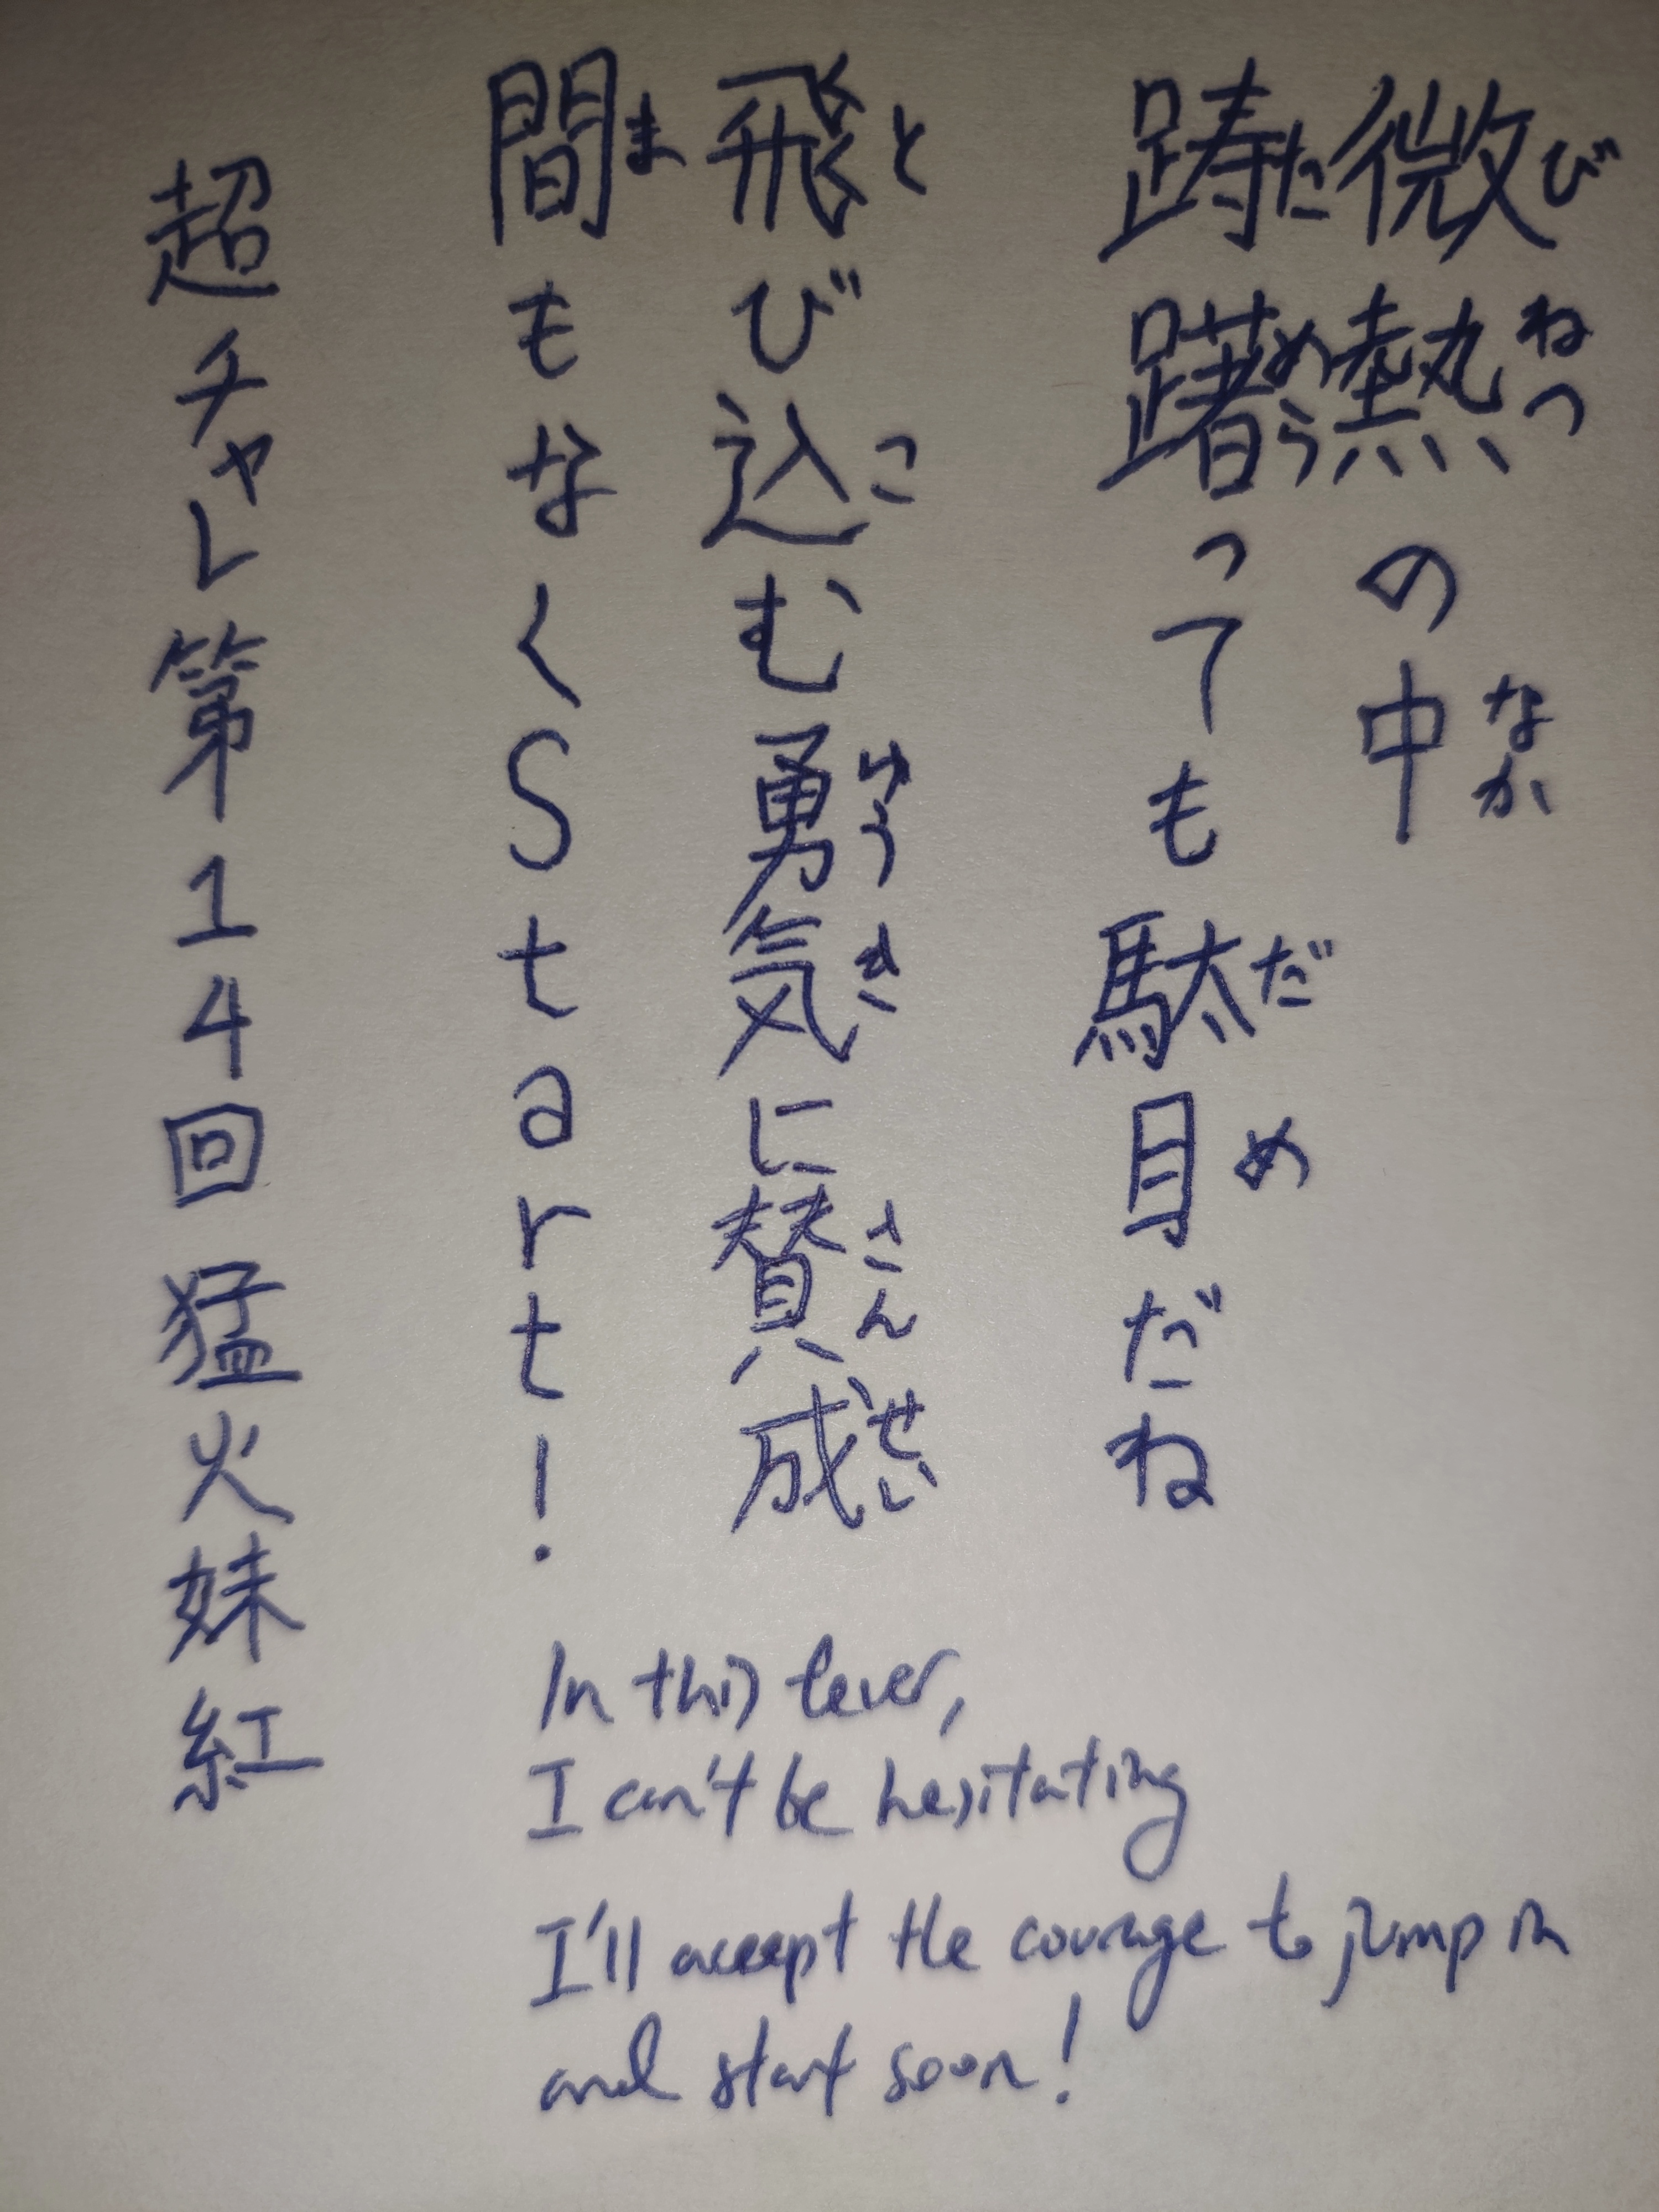 微熱の中
びねつ なか
躊躇っても駄目だね
ためら だめ
飛び込む勇気に賛成
と こ ゆうき さんせい
間もなくStart!
ま
超チャレ第14回 猛火妹紅
In this fever,
I can't be hesitating
I'll accept the courage to jump in
and start soon!